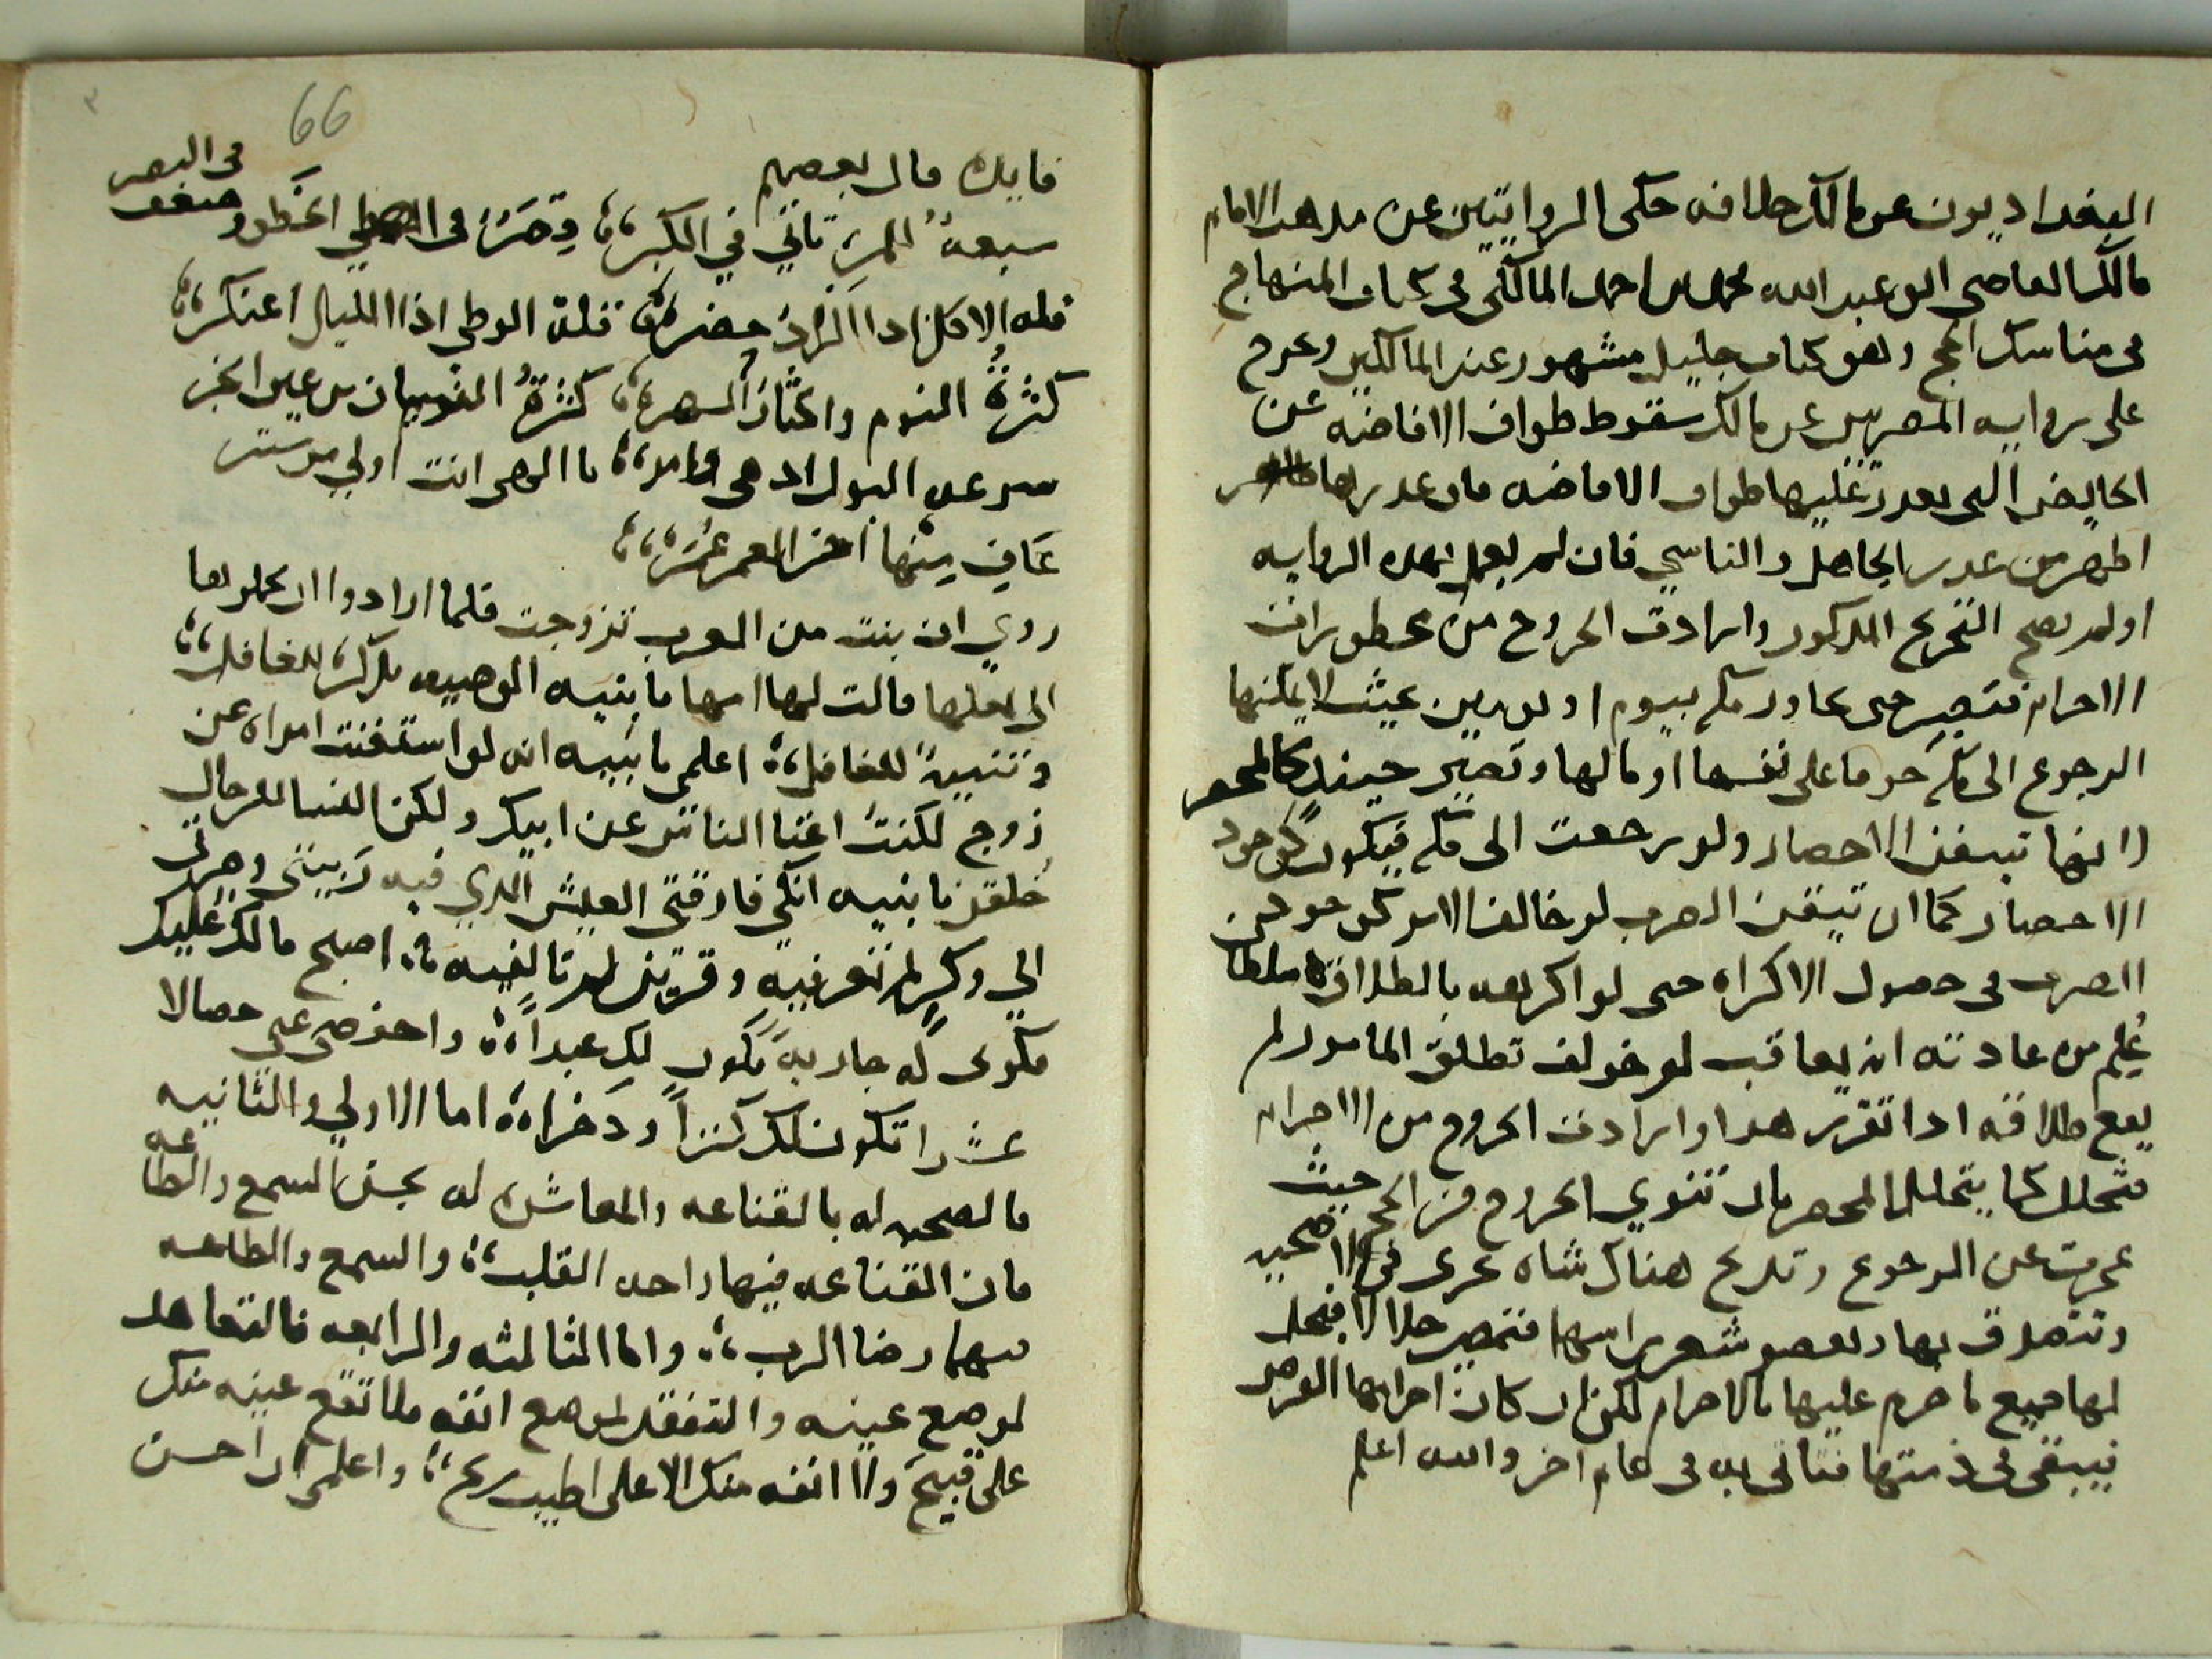 البغداديون عن مالك خلافه حكى الروايتين عن مذهب الامام
مالك القاضي ابو عبد الله محمد بن احمد المالكي في كتاب المنهاج
في مناسك الحج وهو كتاب جليل مشهور عند المالكيين وخرج
على رواية المصريين عن مالك سقوط طواف الافاضه عن
الحايض التي تعذر عليها طواف الافاضه فان عذرها
اظهر من عذر الجاهل والناسي فان لم يعمل بهذه الروايه
او لم يصح التخريج المذكور وارادت الخروج من محظورات
الاحرام فتصبر حتى تجاوز مكه بيوم او يومين بحيث لا يمكنها
الرجوع الى مكه خوفا على نفسها او مالها وتصير حينيذ كالمحصر
لانها تيقن الاحصار ولو رجعت الى مكه فيكون كوجود
الاحصار كما ان تيقن الضرب لو خالف الامر كوجود
الضرب في حصول الاكراه حتى لو اكرهه بالطلاق سلطان
عُلِم من عادته انه يعاقب لو خولف تطلق المامور لم
يقع طلاقه اذا تقرر هذا وارادت الخروج من الاحرام
فتحلل كما يتحلل المحصر بان تنوي الخروج من الحج حيث
عجزت عن الرجوع وتذبح هناك شاه تجزى في الاضحيه
وتتصدق بها وتقصر شعر راسها فتصير حلالا فيحل
لها جميع ما حرم عليها بالاحرام لكن ان كان احرامها الفرض
فيبقى في ذمتها فتاتي به في عام اخر والله اعلم
66
فايده قال بعضهم
سبعة للمرء تاتي في الكبر، وقصر في الخطو وضعف في البصر
قله الاكل اذا الزاد حضر، قلة الوطي اذا الليل اعتكر،
كثرة النوم واكثار السهر، كثرة النسيان من غير الخبر
سرعه البول اذ هي امر، يا الهي انت اولي من ستر
عَافِ مِنْها اخر العمر عُمَر،
روي ان بنت من العرب تزوجت فلما ارادوا ان يحملوها
الى بعلها قالت لها امها يا بنيه الوصيه تذكر للغافل،
وتنبيه للغافل، اعلمي يا بنيه انه لو استغنت امراه عن
زوج لكنتُ اغنا الناس عن ابيك ولكن النسا للرجال
خلقن يا بنيه انكي فارقتي العيش الذي فيه ربيتي وصرتي
الي وكرٍ لم تعرفيه وقرين لم تالفيه، اصبح مالك عليك
فكوني له جاريه يكون لك عبداً، واحفظي عني خصالا
عشرا تكون لك كنزاً وذخرا، اما الاولي والثانيه
فالصحبه له بالقناعه والمعاشره له بحسن السمع والطاعه
فان القناعه فيها راحه القلب، والسمع والطاعه
فيهما رضا الرب، واما الثالثه والرابعه فالتعاهد
لموضع عينه والتفقد لموضع انفه فلا تقع عينه منك
على قبيح ولا انفه منك الا على اطيب ريح، واعلمي ان احسن